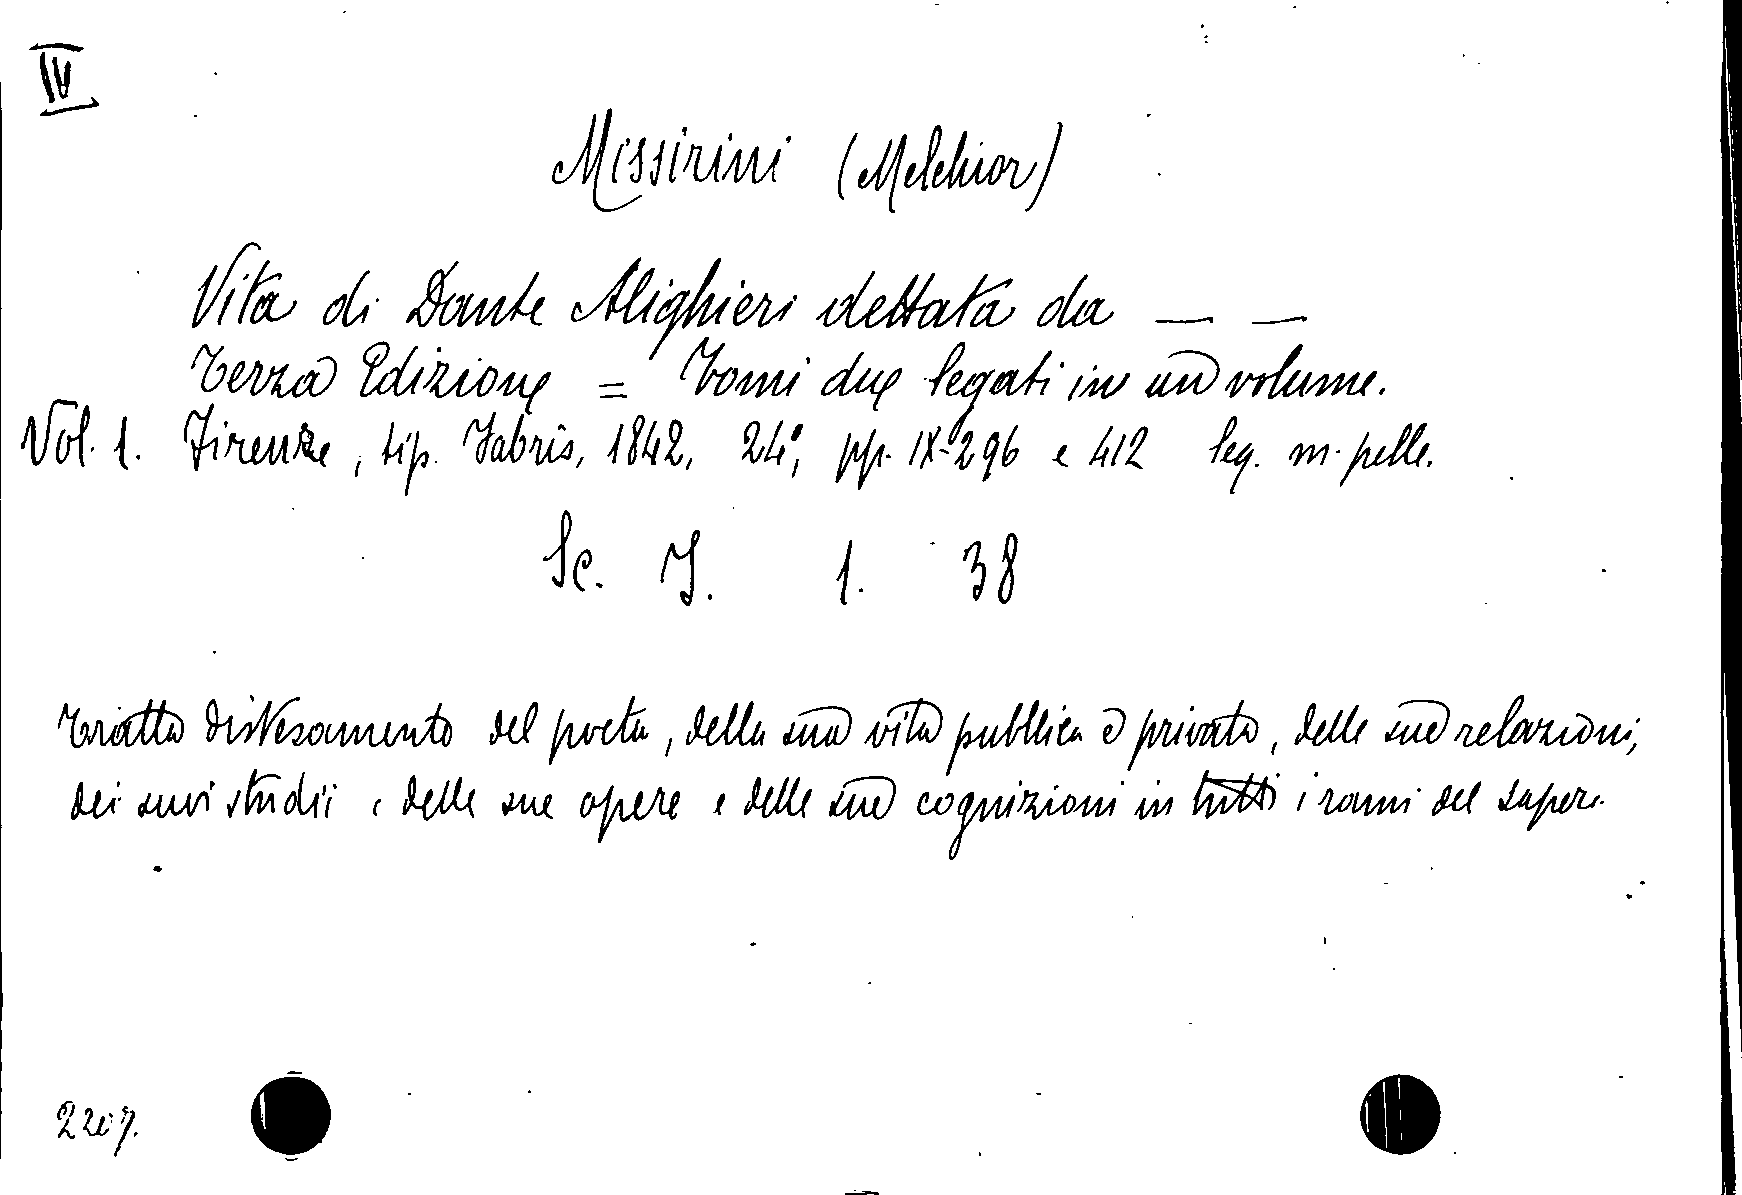 IV
Missirini (Melchior)
Vita di Dante Alighieri dettata da — —
Terza Edizione = Tomi due legati in un volume.
Vol. 1. Firenze, tip. Fabris, 1842, 24°, pp. IX-296 e 412 leg. m. pelle.
Sc. I. 1. 38
Tratta distesamente del poeta, della sua vita pubblica e privata, delle sue relazioni,
dei suoi studii, delle sue opere e delle sue cognizioni in tutti i rami del sapere.
2207.